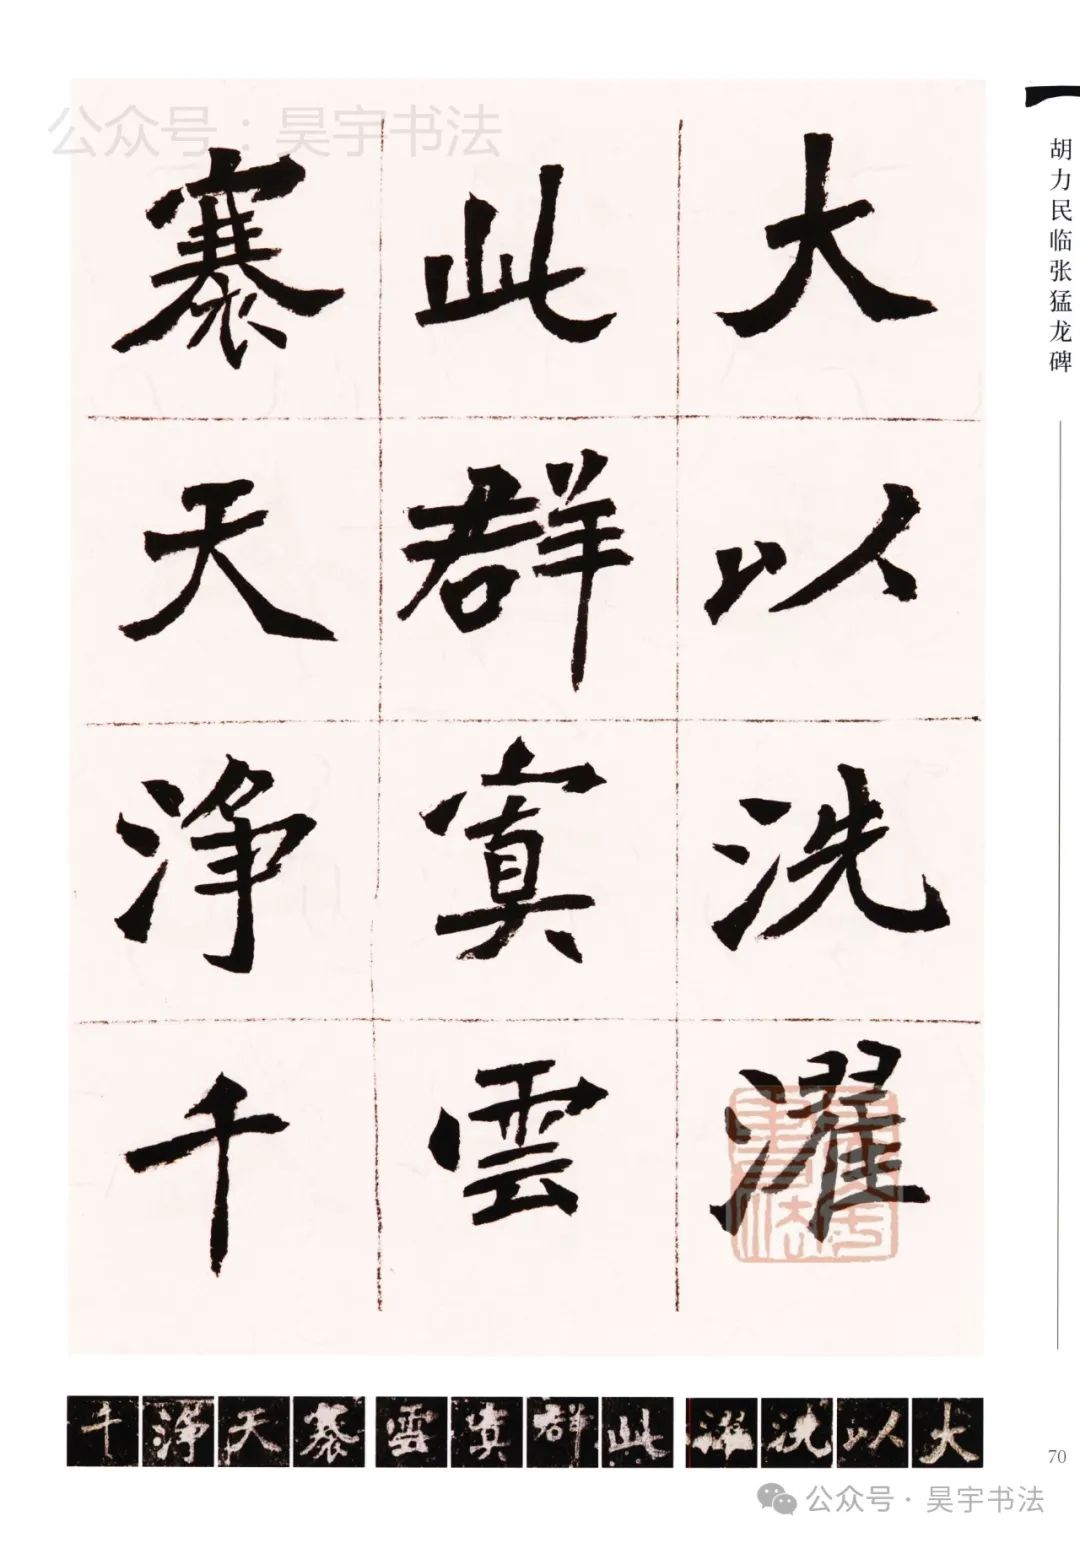 公众号：昊宇书法
胡力民临张猛龙碑
大以洗濯
此群寞雲
褰天净千
千净天褰雲寞群此濯洗以大
70
公众号·昊宇书法